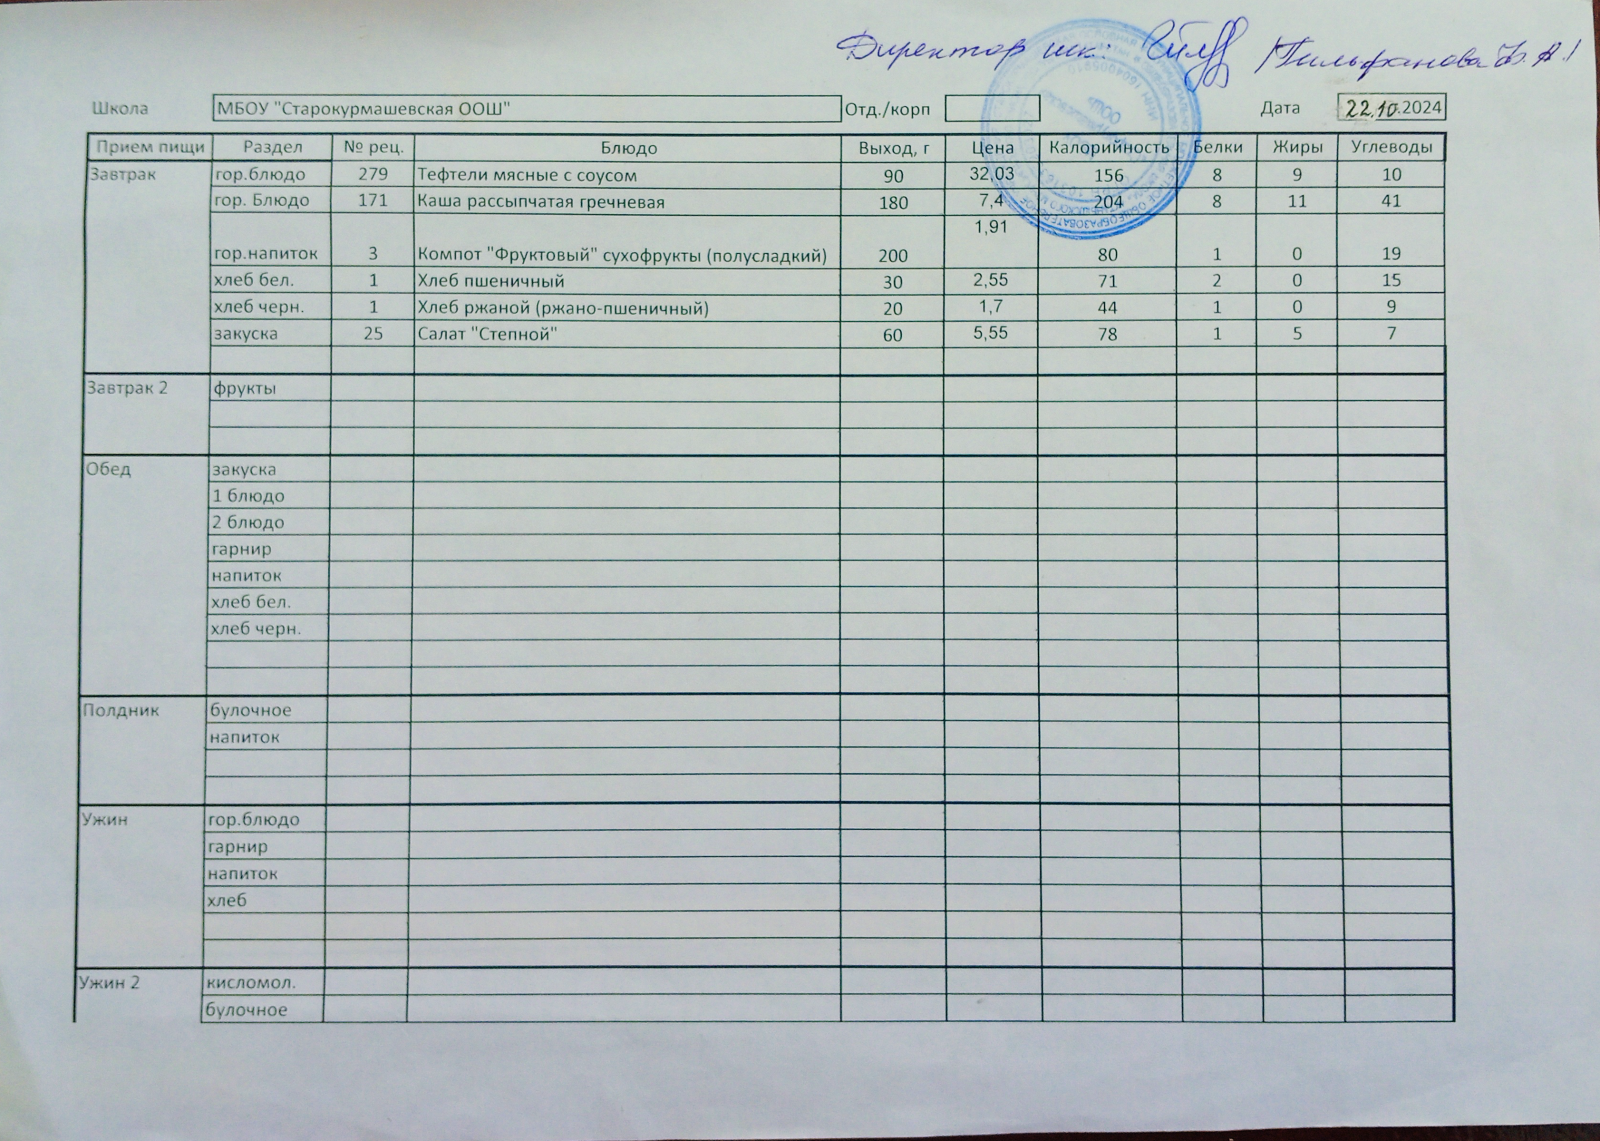 Директор шк:
Школа МБОУ "Старокурмашевская ООШ" Отд./корп Дата 22.10.2024
Прием пищи Раздел № рец. Блюдо Выход, г Цена Калорийность Белки Жиры Углеводы
Завтрак гор.блюдо 279 Тефтели мясные с соусом 90 32,03 156 8 9 10
гор. Блюдо 171 Каша рассыпчатая гречневая 180 7,4 204 8 11 41
гор.напиток 3 Компот "Фруктовый" сухофрукты (полусладкий) 200 1,91 80 1 0 19
хлеб бел. 1 Хлеб пшеничный 30 2,55 71 2 0 15
хлеб черн. 1 Хлеб ржаной (ржано-пшеничный) 20 1,7 44 1 0 9
закуска 25 Салат "Степной" 60 5,55 78 1 5 7
Завтрак 2 фрукты
Обед закуска
1 блюдо
2 блюдо
гарнир
напиток
хлеб бел.
хлеб черн.
Полдник булочное
напиток
Ужин гор.блюдо
гарнир
напиток
хлеб
Ужин 2 кисломол.
булочное